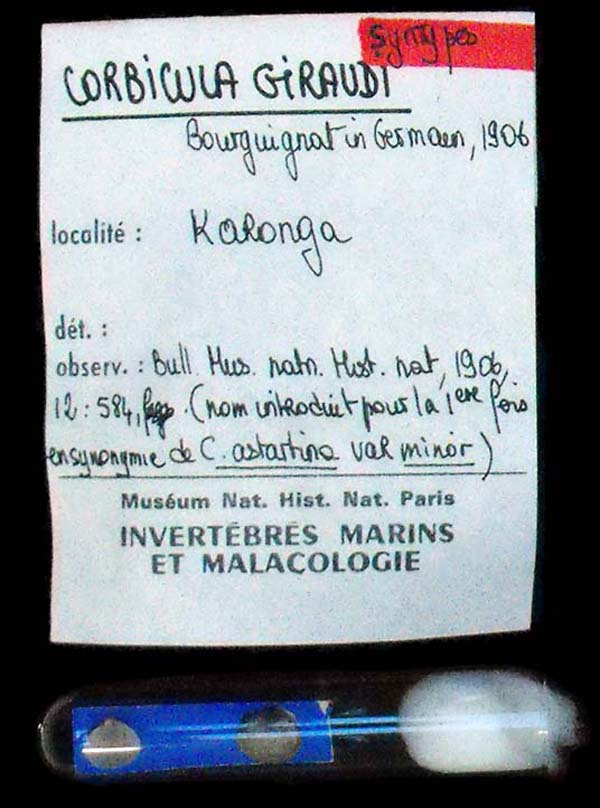 Syntypes
CORBICULA GIRAUDI
Bourguignat in Germain, 1906
localité : Karonga
dét. :
observ. : Bull. Mus. natn. Hist. nat, 1906,
12 : 584, . (nom introduit pour la 1ere fois
en synonymie de C. astartina var minor)
Muséum Nat. Hist. Nat. Paris
INVERTÉBRÉS MARINS
ET MALACOLOGIE